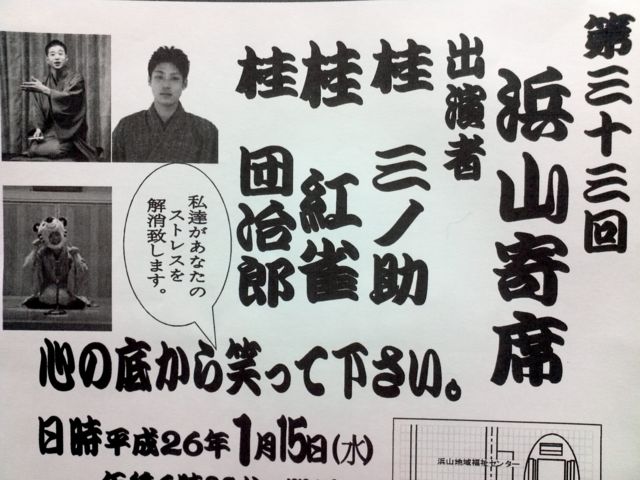 第三十三回
浜山寄席
出演者
桂 三ノ助
桂 紅雀
桂 団治郎
私達があなたの
ストレスを
解消致します。
心の底から笑って下さい。
日時平成26年1月15日(水)
浜山地域福祉センター